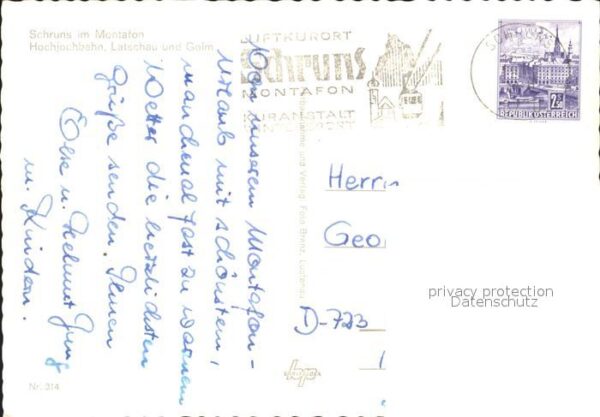 Schruns im Montafon
Hochjochbahn, Latschau und Golm
LUFTKURORT
Schruns
MONTAFON
KURANSTALT
WINTERSPORT
SCHRUNS
2.50
REPUBLIK ÖSTERREICH
Von unserem Montafon-
Urlaub mit schönstem,
manchmal fast zu warmem
Wetter die herzlichsten
Grüße senden Ihnen
Else u. Helmut Jung
m. Kindern.
Herrn
Geo
D-723
privacy protection
Datenschutz
Nr. 314